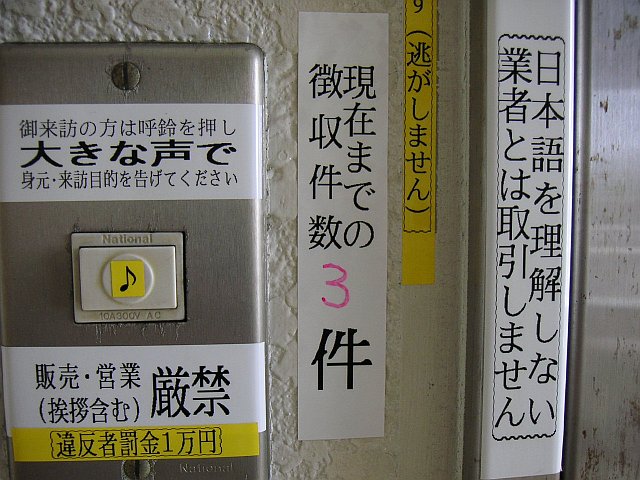 御来訪の方は呼鈴を押し
大きな声で
身元・来訪目的を告げてください
National
♪
10A300V AC
販売・営業
(挨拶含む)
厳禁
違反者罰金1万円
National
現在までの
徴収件数
3
件
す(逃がしません)
日本語を理解しない
業者とは取引しません